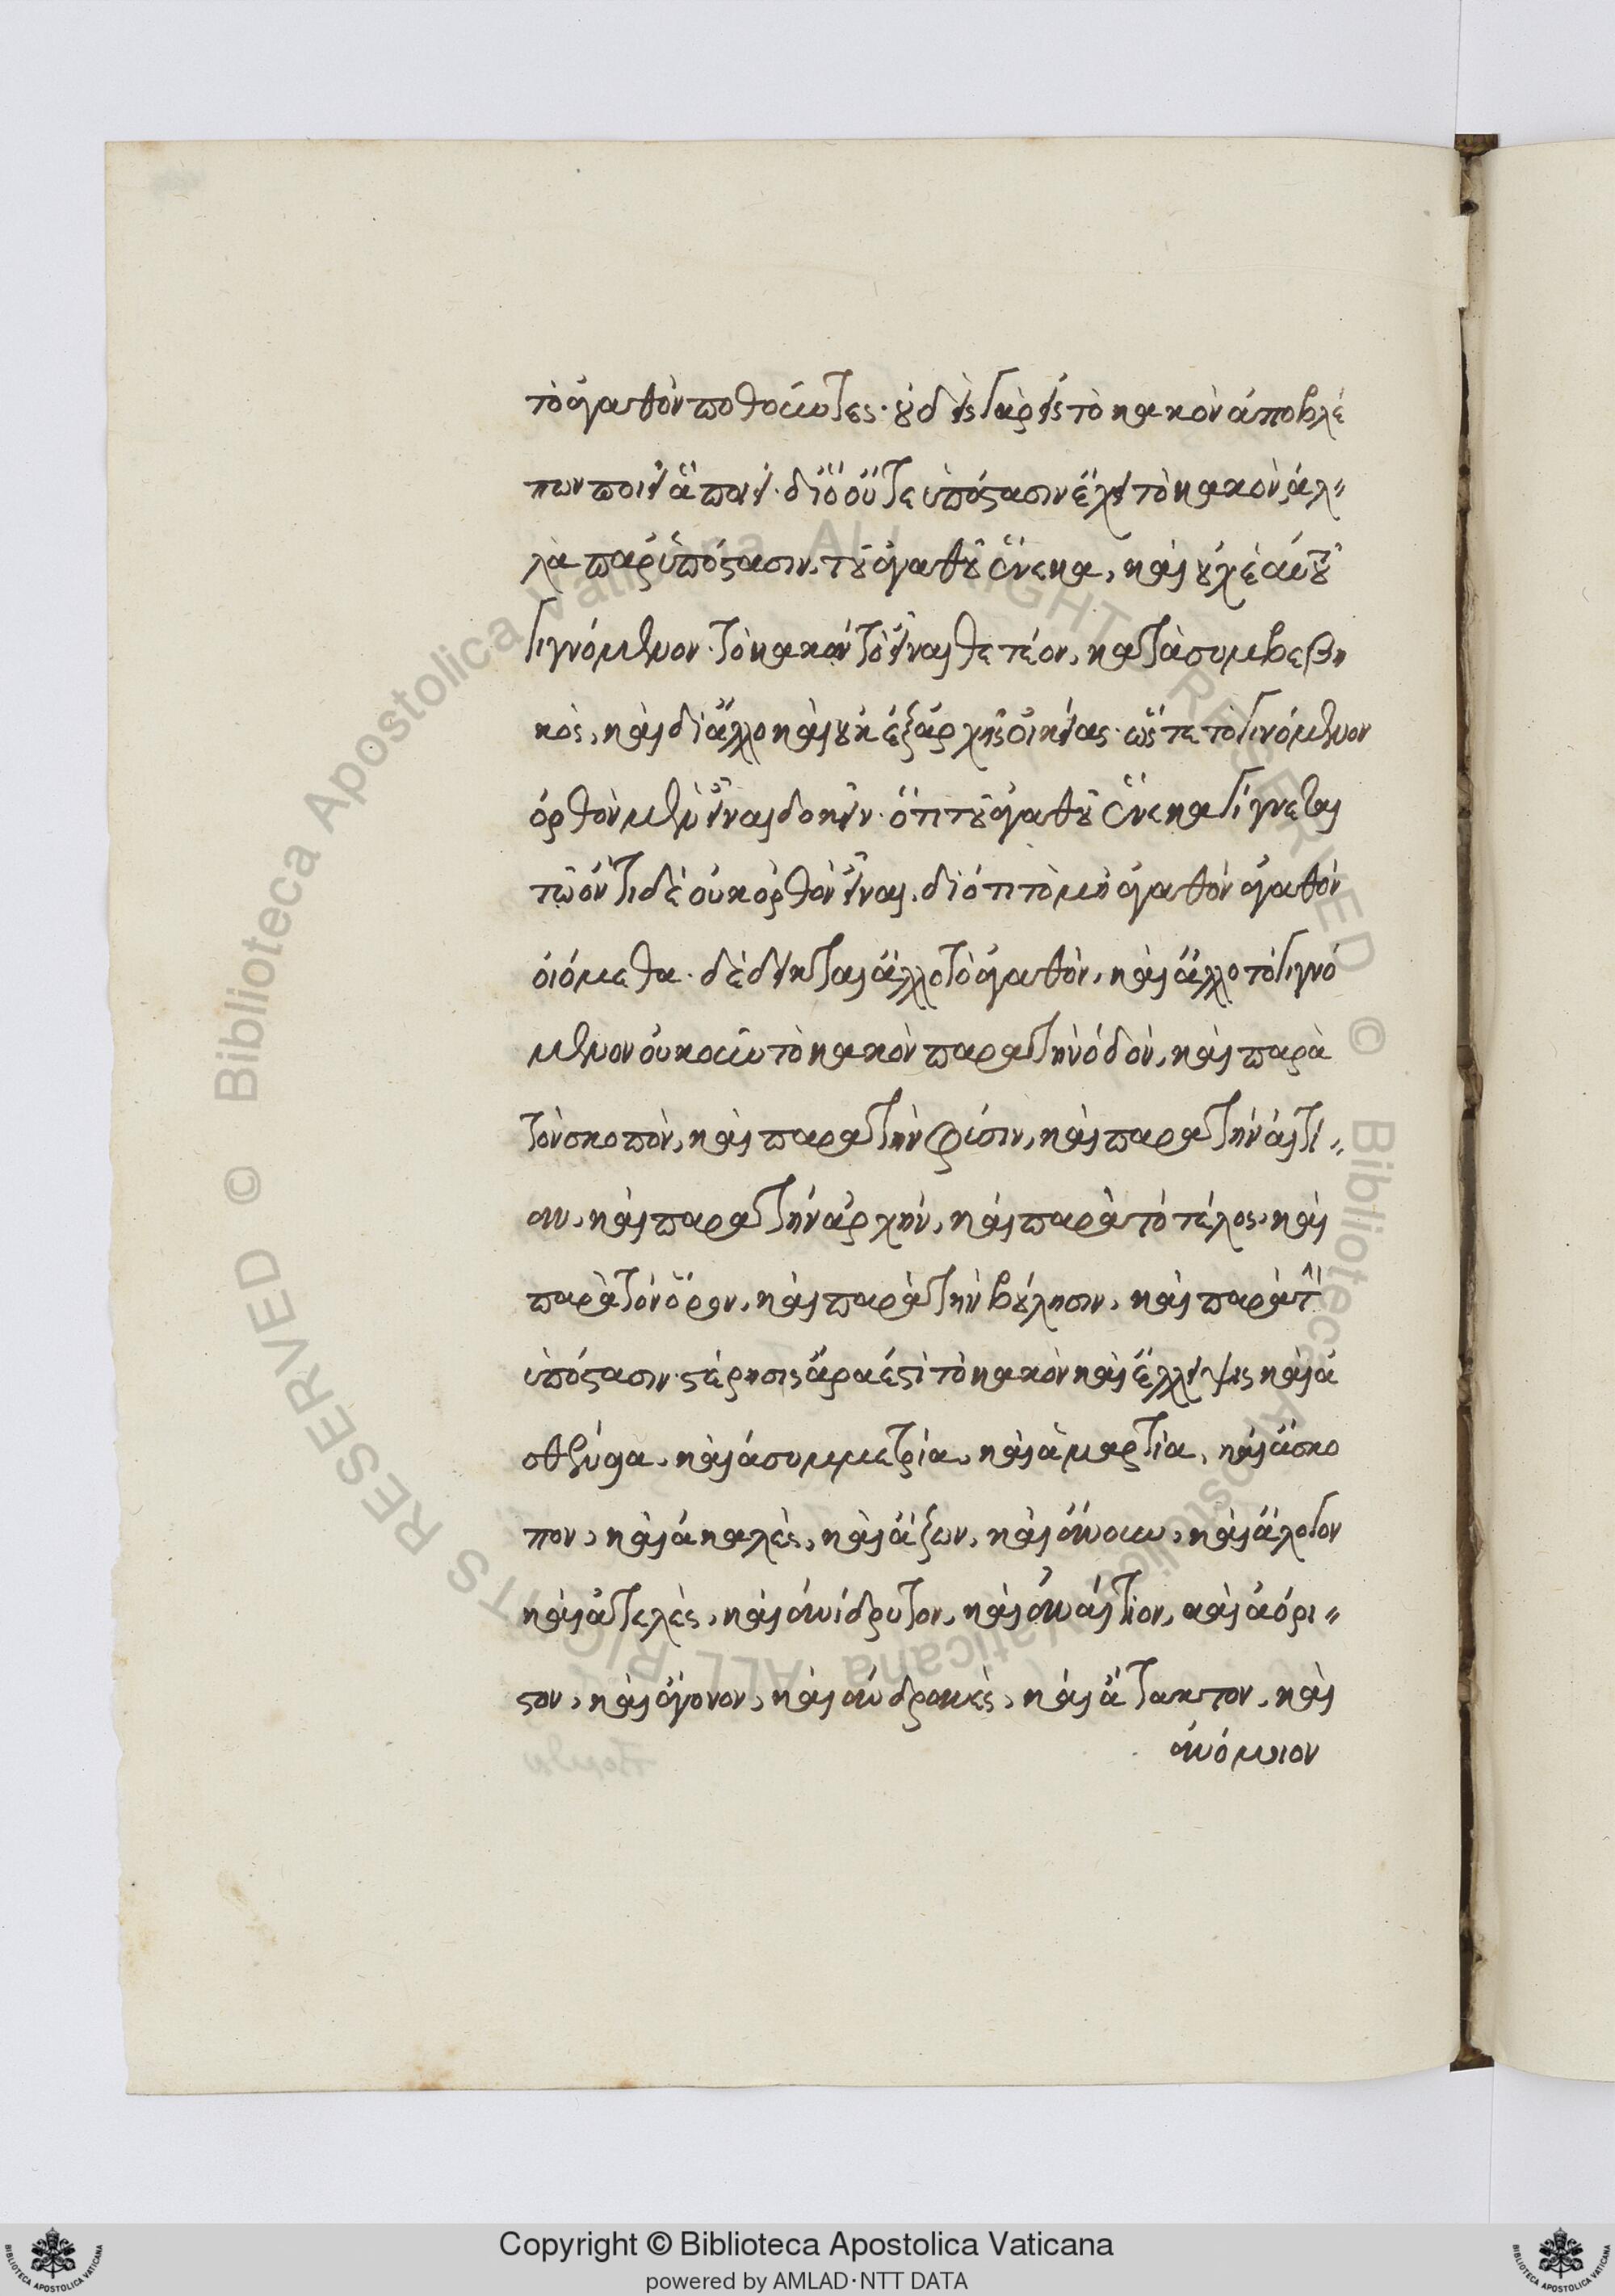 τὸ ἀγαθὸν ποθοῦντες· οὐδεὶς γὰρ εἰς τὸ κακὸν ἀποβλέ
πων ποιεῖ ἃ ποιεῖ· διὸ οὔτε ὑπόστασιν ἔχει τὸ κακὸν, ἀλ〃
λὰ παρυπόστασιν, τοῦ ἀγαθοῦ ἕνεκα, καὶ οὐχ ἑαυτοῦ
γιγνόμενον· τὸ κακὸν τὸ εἶναι θετέον, κατὰ συμβεβη
κὸς, καὶ δι' ἄλλο καὶ οὐκ ἐξ ἀρχῆς οἰκείας· ὥστε τὸ γινόμενον
ὀρθὸν μὲν εἶναι δοκεῖν· ὅτι τοῦ ἀγαθοῦ ἕνεκα γίγνεται
τῷ ὄντι δὲ οὐκ ὀρθὸν εἶναι, διότι τὸ μὴ ἀγαθὸν ἀγαθὸν
οἰόμεθα· δέδεικται ἄλλο τὸ ἀγαθὸν, καὶ ἄλλο τὸ γιγνό
μενον οὐκοῦν τὸ κακὸν παρὰ τὴν ὁδὸν, καὶ παρὰ
τὸν σκοπὸν, καὶ παρὰ τὴν φύσιν, καὶ παρὰ τὴν αἰτί〃
αν, καὶ παρὰ τὴν ἀρχήν, καὶ παρὰ τὸ τέλος, καὶ
παρὰ τὸν ὅρον, καὶ παρὰ τὴν βούλησιν, καὶ παρὰ τὴν
ὑπόστασιν· στέρησις ἄρα ἐστὶ τὸ κακὸν καὶ ἔλλειψις καὶ ἀ
σθένεια, καὶ ἀσυμμετρία, καὶ ἁμαρτία, καὶ ἄσκο
πον, καὶ ἀκαλὲς, καὶ ἄζων, καὶ ἄνουν, καὶ ἄλογον
καὶ ἀτελὲς, καὶ ἀνίδρυτον, καὶ ἀναίτιον, καὶ ἀόρι〃
στον, καὶ ἄγονον, καὶ ἀνδρανὲς, καὶ ἄτακτον, καὶ
ἀνόμοιον
Copyright © Biblioteca Apostolica Vaticana
powered by AMLAD·NTT DATA